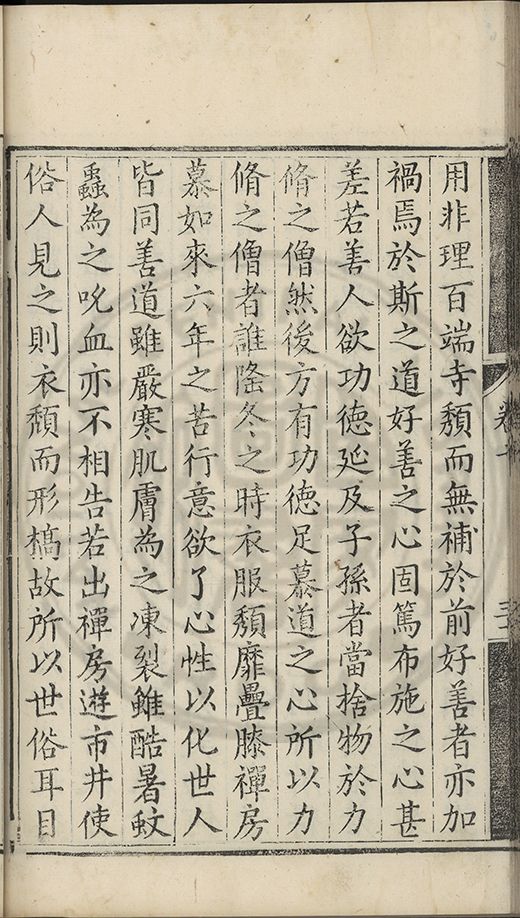 用非理百端寺頽而無補於前好善者亦加
禍焉於斯之道好善之心固篤布施之心甚
差若善人欲功徳延及子孫者當捨物於力
脩之僧然後方有功徳足慕道之心所以力
脩之僧者誰隆冬之時衣服頽靡疊膝禪房
慕如來六年之苦行意欲了心性以化世人
皆同善道雖嚴寒肌膚為之凍裂雖酷暑蚊
蟲為之吮血亦不相告若出禪房遊市井使
俗人見之則衣頽而形槁故所以世俗耳目